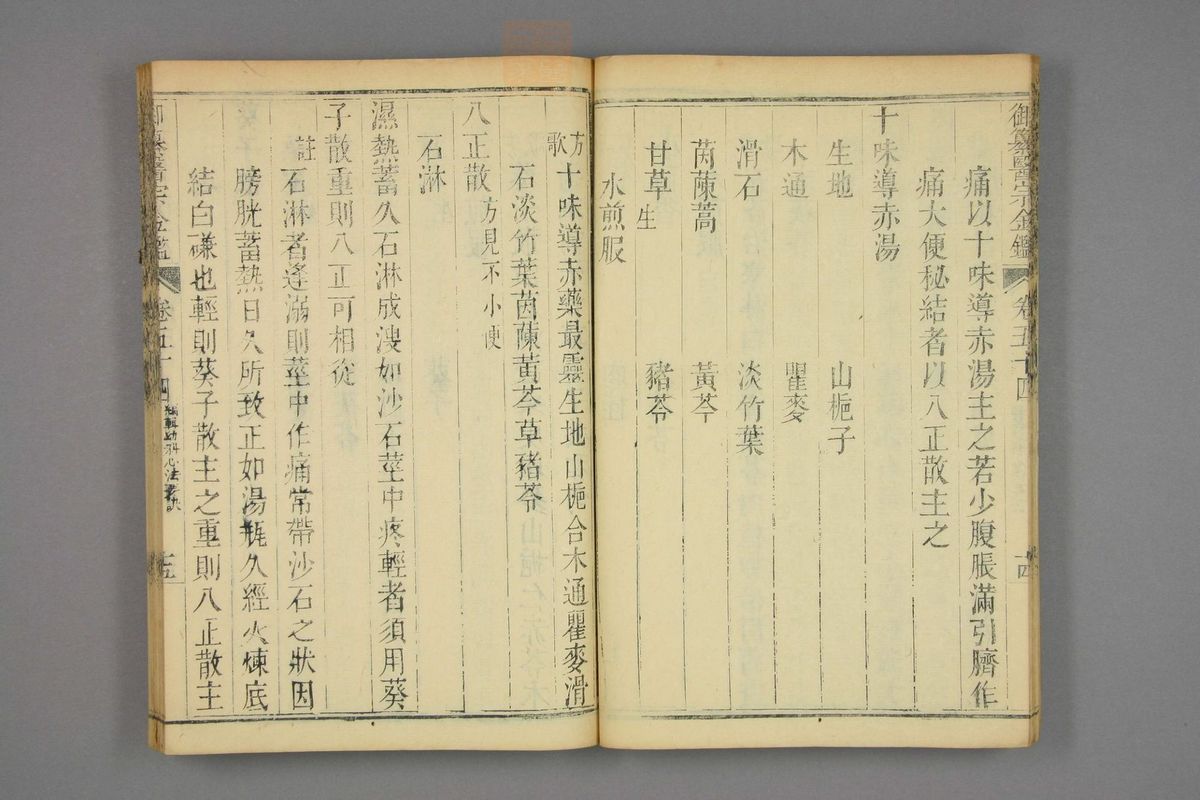 御纂醫宗金鑑 卷五十四 十四
痛以十味導赤湯主之若少腹脹滿引臍作
痛大便秘結者以八正散主之
十味導赤湯
生地 山梔子
木通 瞿麥
滑石 淡竹葉
茵蔯蒿 黃芩
甘草生 豬苓
水煎服
方歌 十味導赤藥最靈生地山梔合木通瞿麥滑
石淡竹葉茵蔯黃芩草豬苓
八正散 方見不小便
石淋
濕熱蓄久石淋成溲如沙石莖中疼輕者須用葵
子散重則八正可相從
註 石淋者逢溺則莖中作痛常帶沙石之狀因
膀胱蓄熱日久所致正如湯瓶久經火煉底
結白磏也輕則葵子散主之重則八正散主
御纂醫宗金鑑 卷五十四 編輯幼科心法要訣 十五